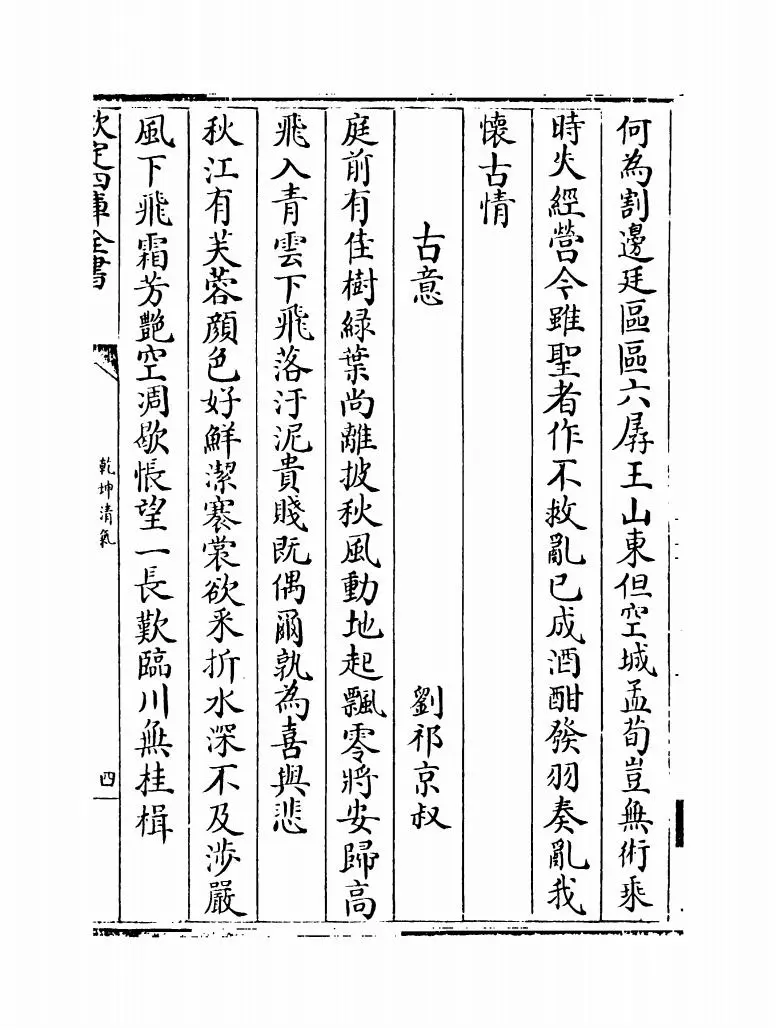 何為割邊廷區區六孱王山東但空城孟荀豈無術乘
時失經營今雖聖者作不救亂已成酒酣發羽奏亂我
懷古情
古意 劉祁京叔
庭前有佳樹緑葉尚離披秋風動地起飄零將安歸高
飛入青雲下飛落汙泥貴賤既偶爾孰為喜與悲
秋江有芙蓉顔色好鮮潔褰裳欲采折水深不及渉嚴
風下飛霜芳艷空凋歇悵望一長歎臨川無桂楫
欽定四庫全書
乾坤清氣
四